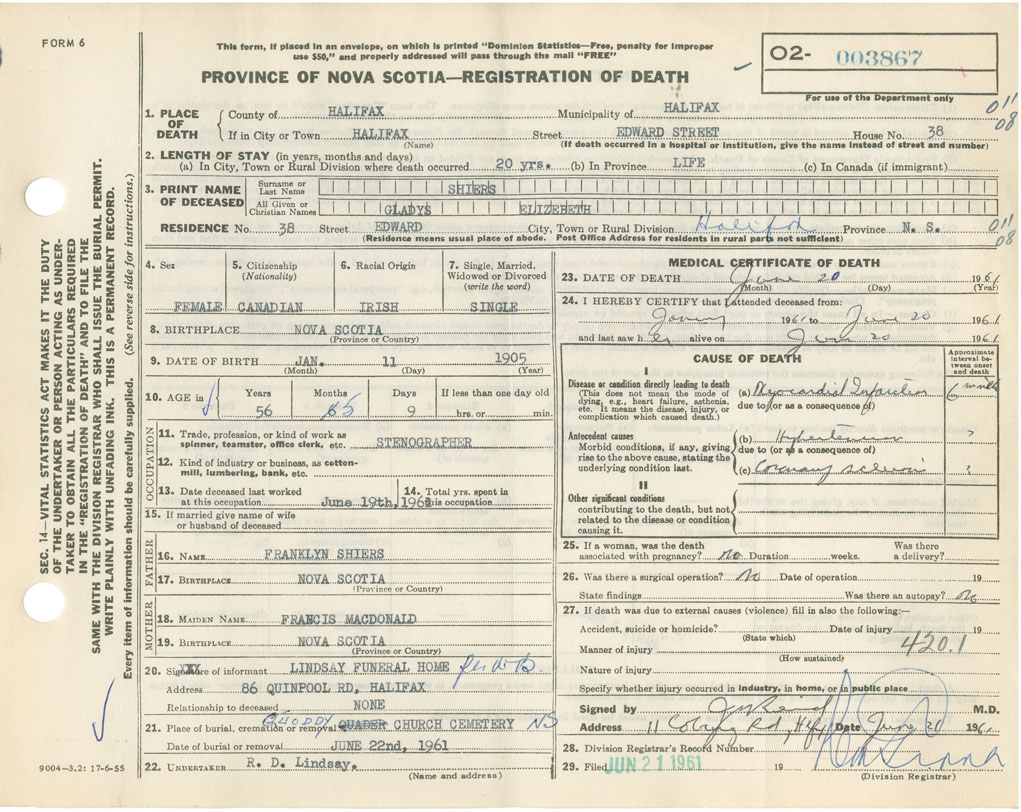 FORM 6
This form, if placed in an envelope, on which is printed "Dominion Statistics—Free, penalty for improper
use $50," and properly addressed will pass through the mail "FREE"
PROVINCE OF NOVA SCOTIA—REGISTRATION OF DEATH
O2- 003867
For use of the Department only
SEC. 14—VITAL STATISTICS ACT MAKES IT THE DUTY
OF THE UNDERTAKER OR PERSON ACTING AS UNDER-
TAKER TO OBTAIN ALL THE PARTICULARS REQUIRED
IN THE "REGISTRATION OF DEATH" AND TO FILE THE
SAME WITH THE DIVISION REGISTRAR WHO SHALL ISSUE THE BURIAL PERMIT.
WRITE PLAINLY WITH UNFADING INK. THIS IS A PERMANENT RECORD.
Every item of information should be carefully supplied. (See reverse side for instructions.)
1. PLACE OF DEATH County of HALIFAX Municipality of HALIFAX 011
If in City or Town HALIFAX Street EDWARD STREET House No. 38 08
(Name) (If death occurred in a hospital or institution, give the name instead of street and number)
2. LENGTH OF STAY (in years, months and days)
(a) In City, Town or Rural Division where death occurred 20 yrs. (b) In Province LIFE (c) In Canada (if immigrant)
3. PRINT NAME OF DECEASED Surname or Last Name SHIERS
All Given or Christian Names GLADYS ELIZEBETH
RESIDENCE No. 38 Street EDWARD City, Town or Rural Division Halifax Province N. S. 011 08
(Residence means usual place of abode. Post Office Address for residents in rural parts not sufficient)
4. Sex FEMALE
5. Citizenship (Nationality) CANADIAN
6. Racial Origin IRISH
7. Single, Married, Widowed or Divorced (write the word) SINGLE
8. BIRTHPLACE NOVA SCOTIA
(Province or Country)
9. DATE OF BIRTH JAN. 11 1905
(Month) (Day) (Year)
10. AGE in Years Months Days If less than one day old
56 65 9 hrs. or min.
OCCUPATION
11. Trade, profession, or kind of work as
spinner, teamster, office clerk, etc. STENOGRAPHER
12. Kind of industry or business, as cotton-
mill, lumbering, bank, etc.
13. Date deceased last worked 14. Total yrs. spent in
at this occupation June 19th, 1961 this occupation
15. If married give name of wife
or husband of deceased
FATHER
16. NAME FRANKLYN SHIERS
17. BIRTHPLACE NOVA SCOTIA
(Province or Country)
MOTHER
18. MAIDEN NAME FRANCIS MACDONALD
19. BIRTHPLACE NOVA SCOTIA
(Province or Country)
20. Signature of informant LINDSAY FUNERAL HOME
Address 86 QUINPOOL RD, HALIFAX
Relationship to deceased NONE
21. Place of burial, cremation or removal GHODDY QUADER CHURCH CEMETERY NS
Date of burial or removal JUNE 22nd, 1961
22. UNDERTAKER R. D. Lindsay.
(Name and address)
9004—3.2: 17-6-55
MEDICAL CERTIFICATE OF DEATH
23. DATE OF DEATH June 20 1961
(Month) (Day) (Year)
24. I HEREBY CERTIFY that I attended deceased from:
1961 to June 20 1961
and last saw her alive on June 20 1961
CAUSE OF DEATH
Approximate interval between onset and death
I
Disease or condition directly leading to death
(This does not mean the mode of
dying, e.g., heart failure, asthenia,
etc. It means the disease, injury, or
complication which caused death.)
(a) Myocardial Infarction 6 months
due to (or as a consequence of)
Antecedent causes
Morbid conditions, if any, giving
rise to the above cause, stating the
underlying condition last.
(b) Hypertension ?
due to (or as a consequence of)
(c) Coronary sclerosis ?
II
Other significant conditions
contributing to the death, but not
related to the disease or condition
causing it.
25. If a woman, was the death Was there
associated with pregnancy? No Duration weeks. a delivery?
26. Was there a surgical operation? No Date of operation 19
State findings Was there an autopsy? No
27. If death was due to external causes (violence) fill in also the following:—
Accident, suicide or homicide? Date of injury 19
(State which)
Manner of injury 420.1
(How sustained)
Nature of injury
Specify whether injury occurred in industry, in home, or in public place
Signed by M.D.
Address 11 Rd, Hfx Date June 20 1961
28. Division Registrar's Record Number
29. Filed JUN 21 1961 19
(Division Registrar)